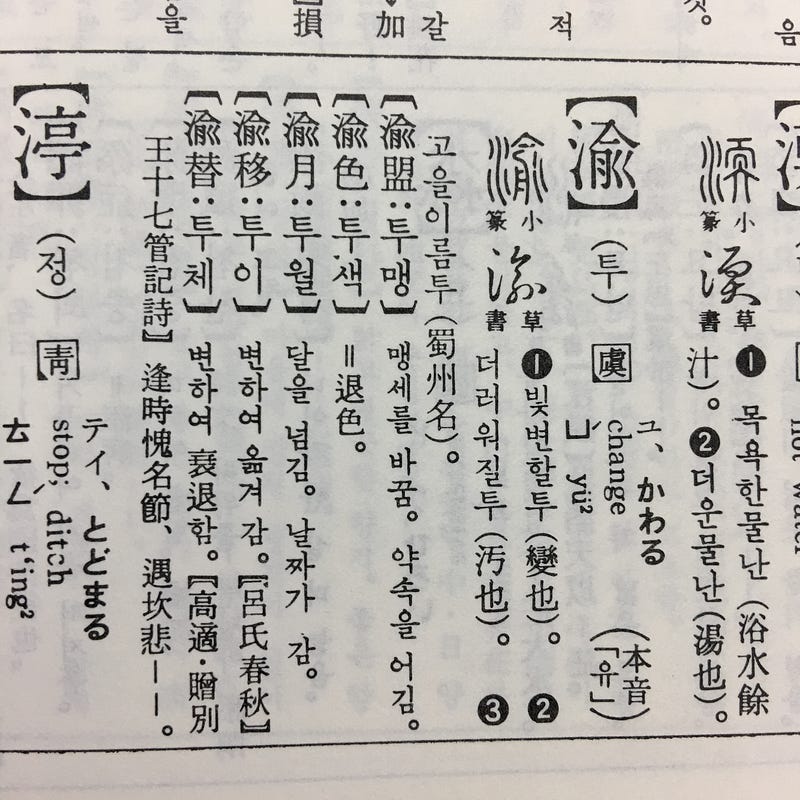 음
것。
적
갈
加
損
을
hot water
小篆 草書 ❶ 목욕한물난（浴水餘
汁）。❷더운물난（湯也）。
【渝】（투） 虞 ユ、かわる change ㄩˊ yü² （本音「유」）
小篆 草書 ❶빛변할투（變也）。❷
더러워질투（汚也）。❸
고을이름투（蜀州名）。
【渝盟：투맹】 맹세를 바꿈。약속을 어김。
【渝色：투색】 ＝退色。
【渝月：투월】 달을 넘김。날짜가 감。
【渝移：투이】 변하여 옮겨 감。〖呂氏春秋〗
【渝替：투체】 변하여 衰退함。〖高適・贈別
王十七管記詩〗 逢時愧名節、遇坎悲――。
【渟】（정） 靑 テイ、とどまる stop; ditch ㄊㄧㄥˊ t'ing²